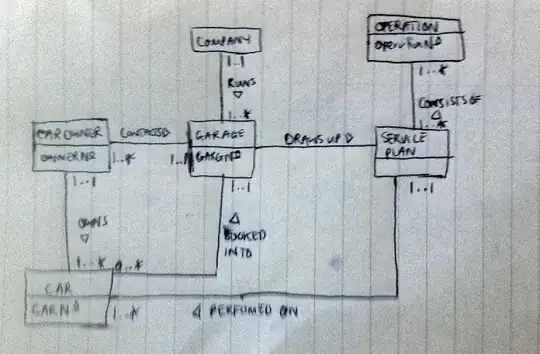 COMPANY
OPERATION
1..1
1..*
RUNS
CONSISTS OF
1..*
1..*
CAR OWNER
CONTACTS
GARAGE
DRAWS UP
SERVICE
PLAN
OWNERNO
1..*
1..1
1..1
1..1
1..1
OWNS
BOOKED
INTO
1..*
0..*
CAR
CARNO
1..*
PERFUMED ON